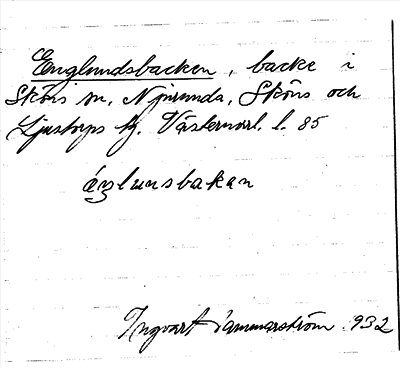 Englundsbacken, backe i
Sköns sn, Njurunda, Sköns och
Ljustorps tg. Västernorrl. l. 85
éŋlunsbakan
Ingvart Jammerström 1932